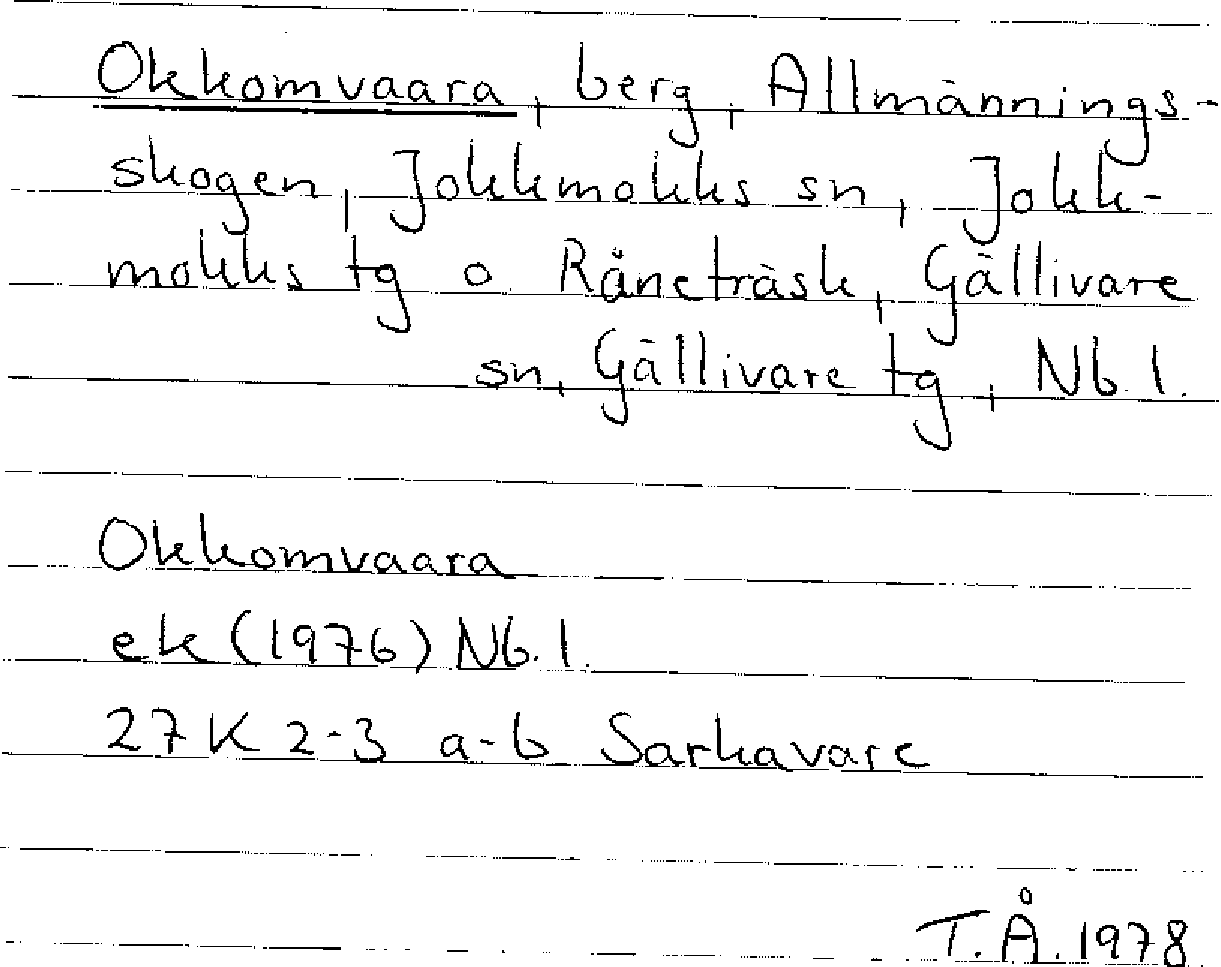 Okkomvaara, berg, Allmännings-
skogen, Jokkmokks sn, Jokk-
mokks tg o Råneträsk, Gällivare
sn, Gällivare tg, Nb. l.
Okkomvaara
ek (1976) Nb. l.
27 K 2-3 a-b Sarkavare
T.Å. 1978